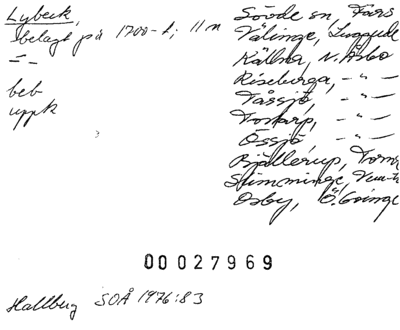 Lybeck,
belagt på 1700-t; 11 n
— " —
beb
uppk
Sövde sn, Färs
Välinge, Luggude
Källna, N. Åsbo
Riseberga, — " —
Tåssjö, — " —
Torarp, — " —
Össjö, — " —
Bjällerup, Torna
Stimminge, Vem
Osby, Ö. Göinge
00 027969
Hallberg SOÅ 1976:83